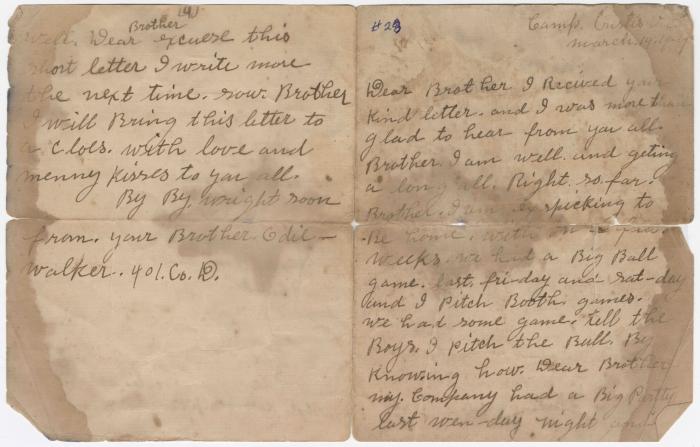 (4)
Brother
well. Dear excuese this
short letter I write more
the next time. sow. Brother
I will Bring this letter to
a. cloes. with love and
menny kisses to yar all.
By By. wright soon
from. your Brother. Edie
walker. 401. Co. D.
#28
Camp. Custis
march. 19.
Dear Brother I Recived your
Kind letter. and I was more than
glad to hear from you all.
Brother. I am well. and geting
a long all. Right. so. far.
Brother. I am ex specking to
Be home. with on
weeks. we had a Big Ball
game. last. fri-day and sat-day
and I Pitch Booth. games.
we had some game. tell the
Boys. I pitch the Ball. By
Knowing how. Dear Brother
my. Company had a Big Party
last wen-day night and